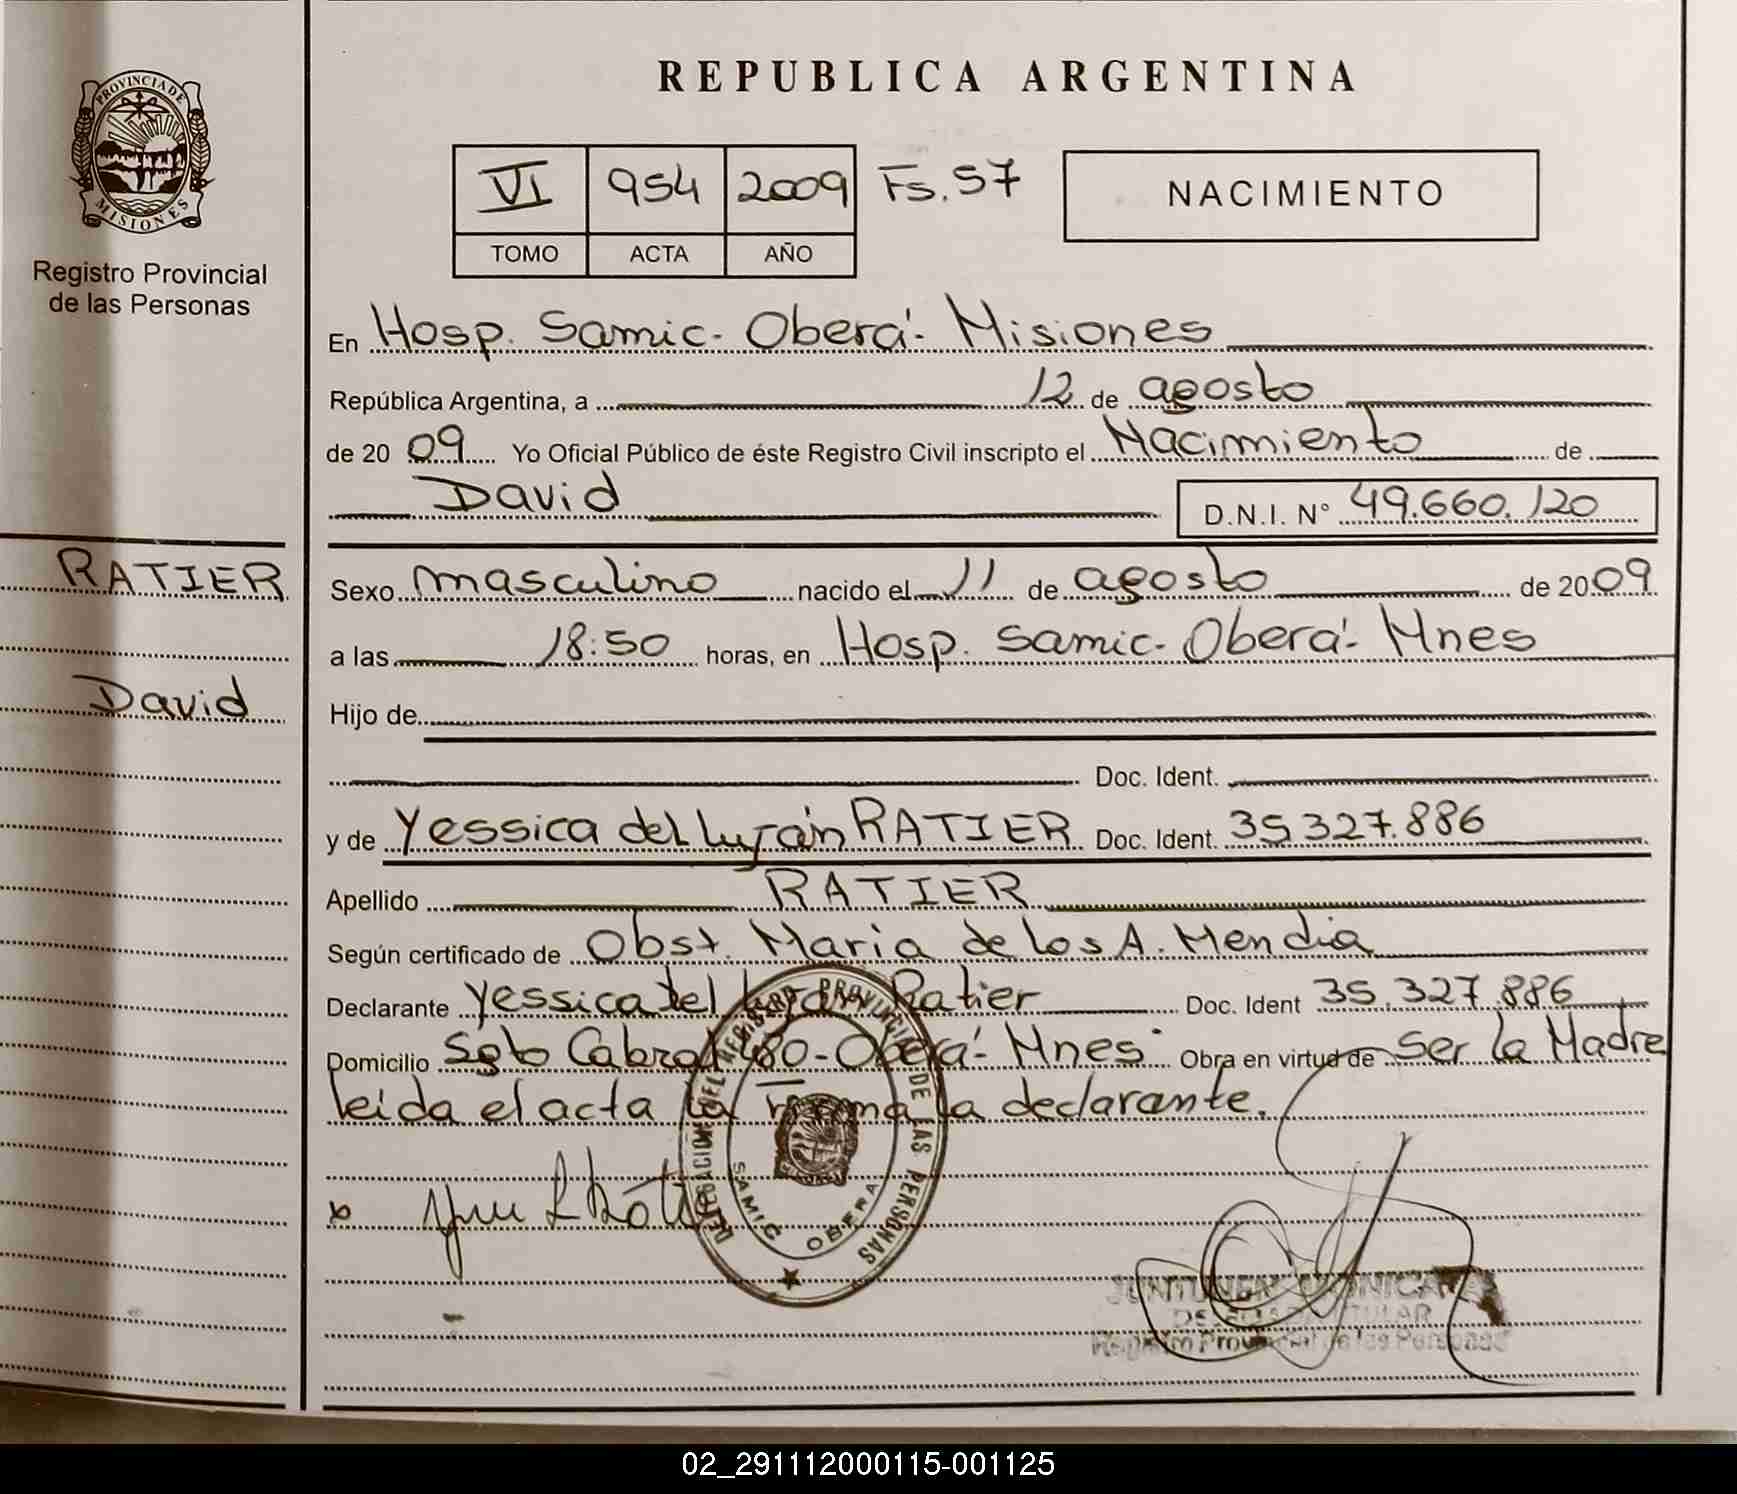 PROVINCIA DE
MISIONES
Registro Provincial
de las Personas
RATIER
David
REPUBLICA ARGENTINA
VI 954 2009 Fs. 57
TOMO ACTA AÑO
NACIMIENTO
En Hosp. Samic - Oberá - Misiones
República Argentina, a 12 de agosto
de 20 09 Yo Oficial Público de éste Registro Civil inscripto el Nacimiento de
David D.N.I. N° 49.660.120
Sexo masculino nacido el 11 de agosto de 20 09
a las 18:50 horas, en Hosp. Samic - Oberá - Mnes
Hijo de
Doc. Ident.
y de Yessica del Luján RATIER Doc. Ident. 35.327.886
Apellido RATIER
Según certificado de Obst. Maria de los A. Mendia
Declarante Yessica del Luján Ratier Doc. Ident 35.327.886
Domicilio Sgto Cabral 480 - Oberá - Mnes Obra en virtud de ser la Madre
leida el acta la firma la declarante.
DELEGACION DEL REGISTRO PROVINCIAL DE LAS PERSONAS
SAMIC OBERA
TITULAR
Registro Provincial de las Personas
02_291112000115-001125